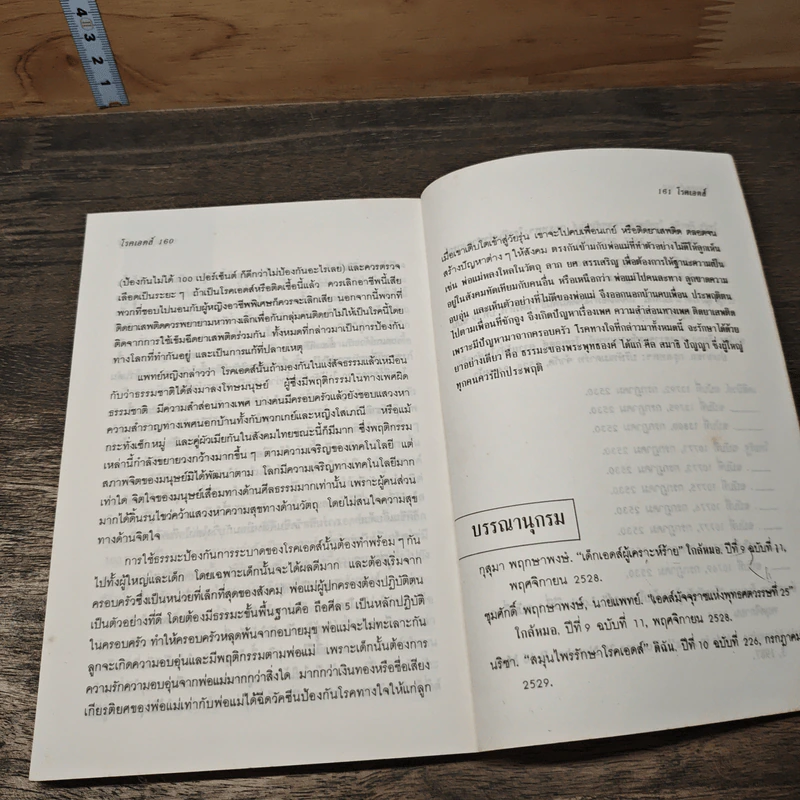 4 3 2 1
โรคเอดส์ 160
(ป้องกันไม่ได้ 100 เปอร์เซ็นต์ ก็ดีกว่าไม่ป้องกันอะไรเลย) และควรตรวจ
เลือดเป็นระยะ ๆ ถ้าเป็นโรคเอดส์หรือติดเชื้อนี้แล้ว ควรเลิกอาชีพนี้เสีย
พวกที่ชอบไปนอนกับผู้หญิงอาชีพพิเศษก็ควรจะเลิกเสีย นอกจากนี้พวกที่
ติดยาเสพติดควรพยายามหาทางเลิกเพื่อกันกลุ่มคนติดยาไม่ให้เป็นโรคนี้โดย
ติดจากการใช้เข็มฉีดยาเสพติดร่วมกัน ทั้งหมดที่กล่าวมาเป็นการป้องกัน
ทางโลกที่ทำกันอยู่ และเป็นการแก้ที่ปลายเหตุ
แพทย์หญิงกล่าวว่า โรคเอดส์นั้นถ้ามองกันในแง่สัจธรรมแล้วเหมือน
กับว่าธรรมชาติได้ส่งมาลงโทษมนุษย์ ผู้ซึ่งมีพฤติกรรมในทางเพศผิด
ธรรมชาติ มีความสำส่อนทางเพศ บางคนมีครอบครัวแล้วยังชอบแสวงหา
ความสำราญทางเพศนอกบ้านทั้งกับพวกเกย์และหญิงโสเภณี หรือแม้
กระทั่งเซ็กหมู่ และคู่ผัวเมียกันในสังคมไทยขณะนี้ก็มีมาก ซึ่งพฤติกรรม
เหล่านี้กำลังขยายวงกว้างมากขึ้น ๆ ตามความเจริญของเทคโนโลยี แต่
สภาพจิตของมนุษย์มิได้พัฒนาตาม โลกมีความเจริญทางเทคโนโลยีมาก
เท่าใด จิตใจของมนุษย์เสื่อมทางด้านศีลธรรมมากเท่านั้น เพราะผู้คนส่วน
มากได้ดิ้นรนไขว่คว้าแสวงหาความสุขทางด้านวัตถุ โดยไม่สนใจความสุข
ทางด้านจิตใจ
การใช้ธรรมะป้องกันการระบาดของโรคเอดส์นั้นต้องทำพร้อม ๆ กัน
ไปทั้งผู้ใหญ่และเด็ก โดยเฉพาะเด็กนั้นจะได้ผลดีมาก และต้องเริ่มจาก
ครอบครัวซึ่งเป็นหน่วยที่เล็กที่สุดของสังคม พ่อแม่ผู้ปกครองต้องปฏิบัติตน
เป็นตัวอย่างที่ดี โดยต้องมีธรรมะขั้นพื้นฐานคือ ถือศีล 5 เป็นหลักปฏิบัติ
ในครอบครัว ทำให้ครอบครัวหลุดพ้นจากอบายมุข พ่อแม่จะไม่ทะเลาะกัน
ลูกจะเกิดความอบอุ่นและมีพฤติกรรมตามพ่อแม่ เพราะเด็กนั้นต้องการ
ความรักความอบอุ่นจากพ่อแม่มากกว่าสิ่งใด มากกว่าเงินทองหรือชื่อเสียง
เกียรติยศของพ่อแม่เท่ากับพ่อแม่ได้ฉีดวัคซีนป้องกันโรคทางใจให้แก่ลูก
161 โรคเอดส์
เมื่อเขาเติบโตเข้าสู่วัยรุ่น เขาจะไปคบเพื่อนเกย์ หรือติดยาเสพติด ตลอดจน
สร้างปัญหาต่าง ๆ ให้สังคม ตรงกันข้ามกับพ่อแม่ที่ทำตัวอย่างไม่ดีให้ลูกเห็น
เช่น พ่อแม่หลงใหลในวัตถุ ลาภ ยศ สรรเสริญ เพื่อต้องการให้ฐานะความเป็น
อยู่ในสังคมทัดเทียมกับคนอื่น หรือเหนือกว่า พ่อแม่ไปคนละทาง ลูกขาดความ
อบอุ่น และเห็นตัวอย่างที่ไม่ดีของพ่อแม่ จึงออกนอกบ้านคบเพื่อน ประพฤติตน
ไปตามเพื่อนที่ชักจูง จึงเกิดปัญหาเรื่องเพศ ความสำส่อนทางเพศ ติดยาเสพติด
เพราะมีปัญหามาจากครอบครัว โรคทางใจที่กล่าวมาทั้งหมดนี้ จะรักษาได้ด้วย
ยาอย่างเดียว คือ ธรรมะของพระพุทธองค์ ได้แก่ ศีล สมาธิ ปัญญา ซึ่งผู้ใหญ่
ทุกคนควรฝึกประพฤติ
บรรณานุกรม
กุสุมา พฤกษาพงษ์. “เด็กเอดส์ผู้เคราะห์ร้าย” ใกล้หมอ. ปีที่ 9 ฉบับที่ 11,
พฤศจิกายน 2528.
ชุมศักดิ์ พฤกษาพงษ์, นายแพทย์. “เอดส์มัจจุราชแห่งพุทธศตวรรษที่ 25”
ใกล้หมอ. ปีที่ 9 ฉบับที่ 11, พฤศจิกายน 2528.
นริชา. “สมุนไพรรักษาโรคเอดส์” ดิฉัน. ปีที่ 10 ฉบับที่ 226, กรกฎาคม
2529.